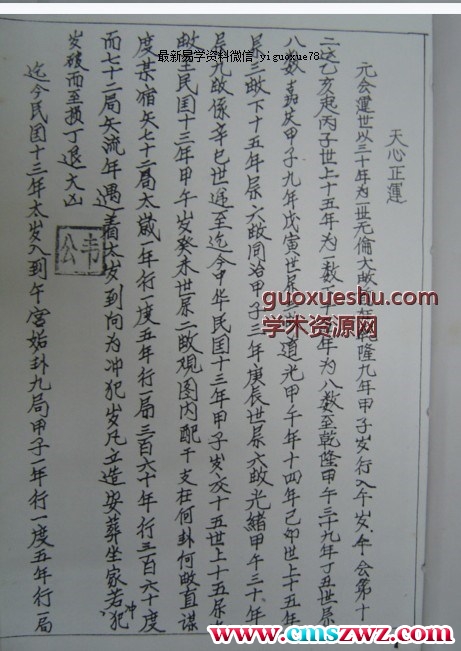 最新易学资料微信 yiguoxue78
天心正運
元会運世以三十年為一世无倫大
隆九年甲子岁行入午岁午会第十
二迄乙亥起丙子世上十五年為一数下十五年為八数至乾隆甲午三十九年丁丑世
八数嘉庆甲子九年戊寅世
道光甲午年十四年己卯世上十五年
三畝下十五年屬六畝同治甲子三年庚辰世屬六畝光緒甲午三十年
九畝係辛巳世 至迄今中华民国十三年甲子岁 十五世上十五屬
畝至民国十三年甲午岁癸未世屬二畝观图内配干支在何卦何畝直
度某宿矢七十二局太嵗一年行一度五年行一局三百六十年行三百六十度
而七十二局矢流年遇着太岁到向为冲犯岁凡立造安葬坐家若犯冲
岁破而至损丁退大凶
韦公
迄今民国十三年太岁入到午宫姤卦九局甲子一年行一度五年行一局
guoxueshu.com
学术资源网
www.cmszwz.com